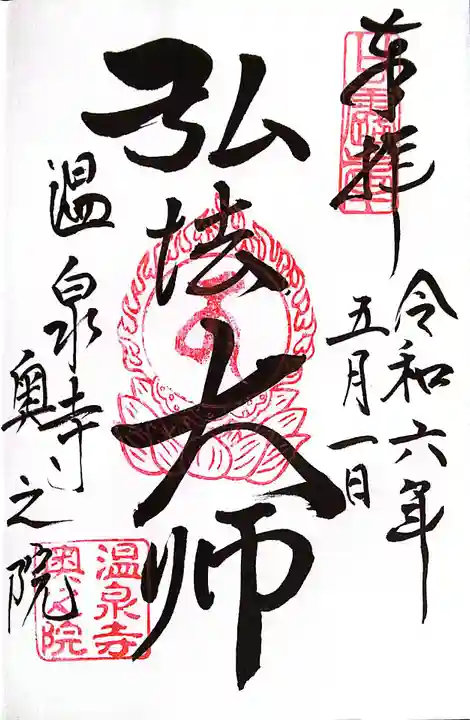 奉拝
令和六年
五月一日
弘法大师
温泉寺
奥之院
温泉寺
奥之院